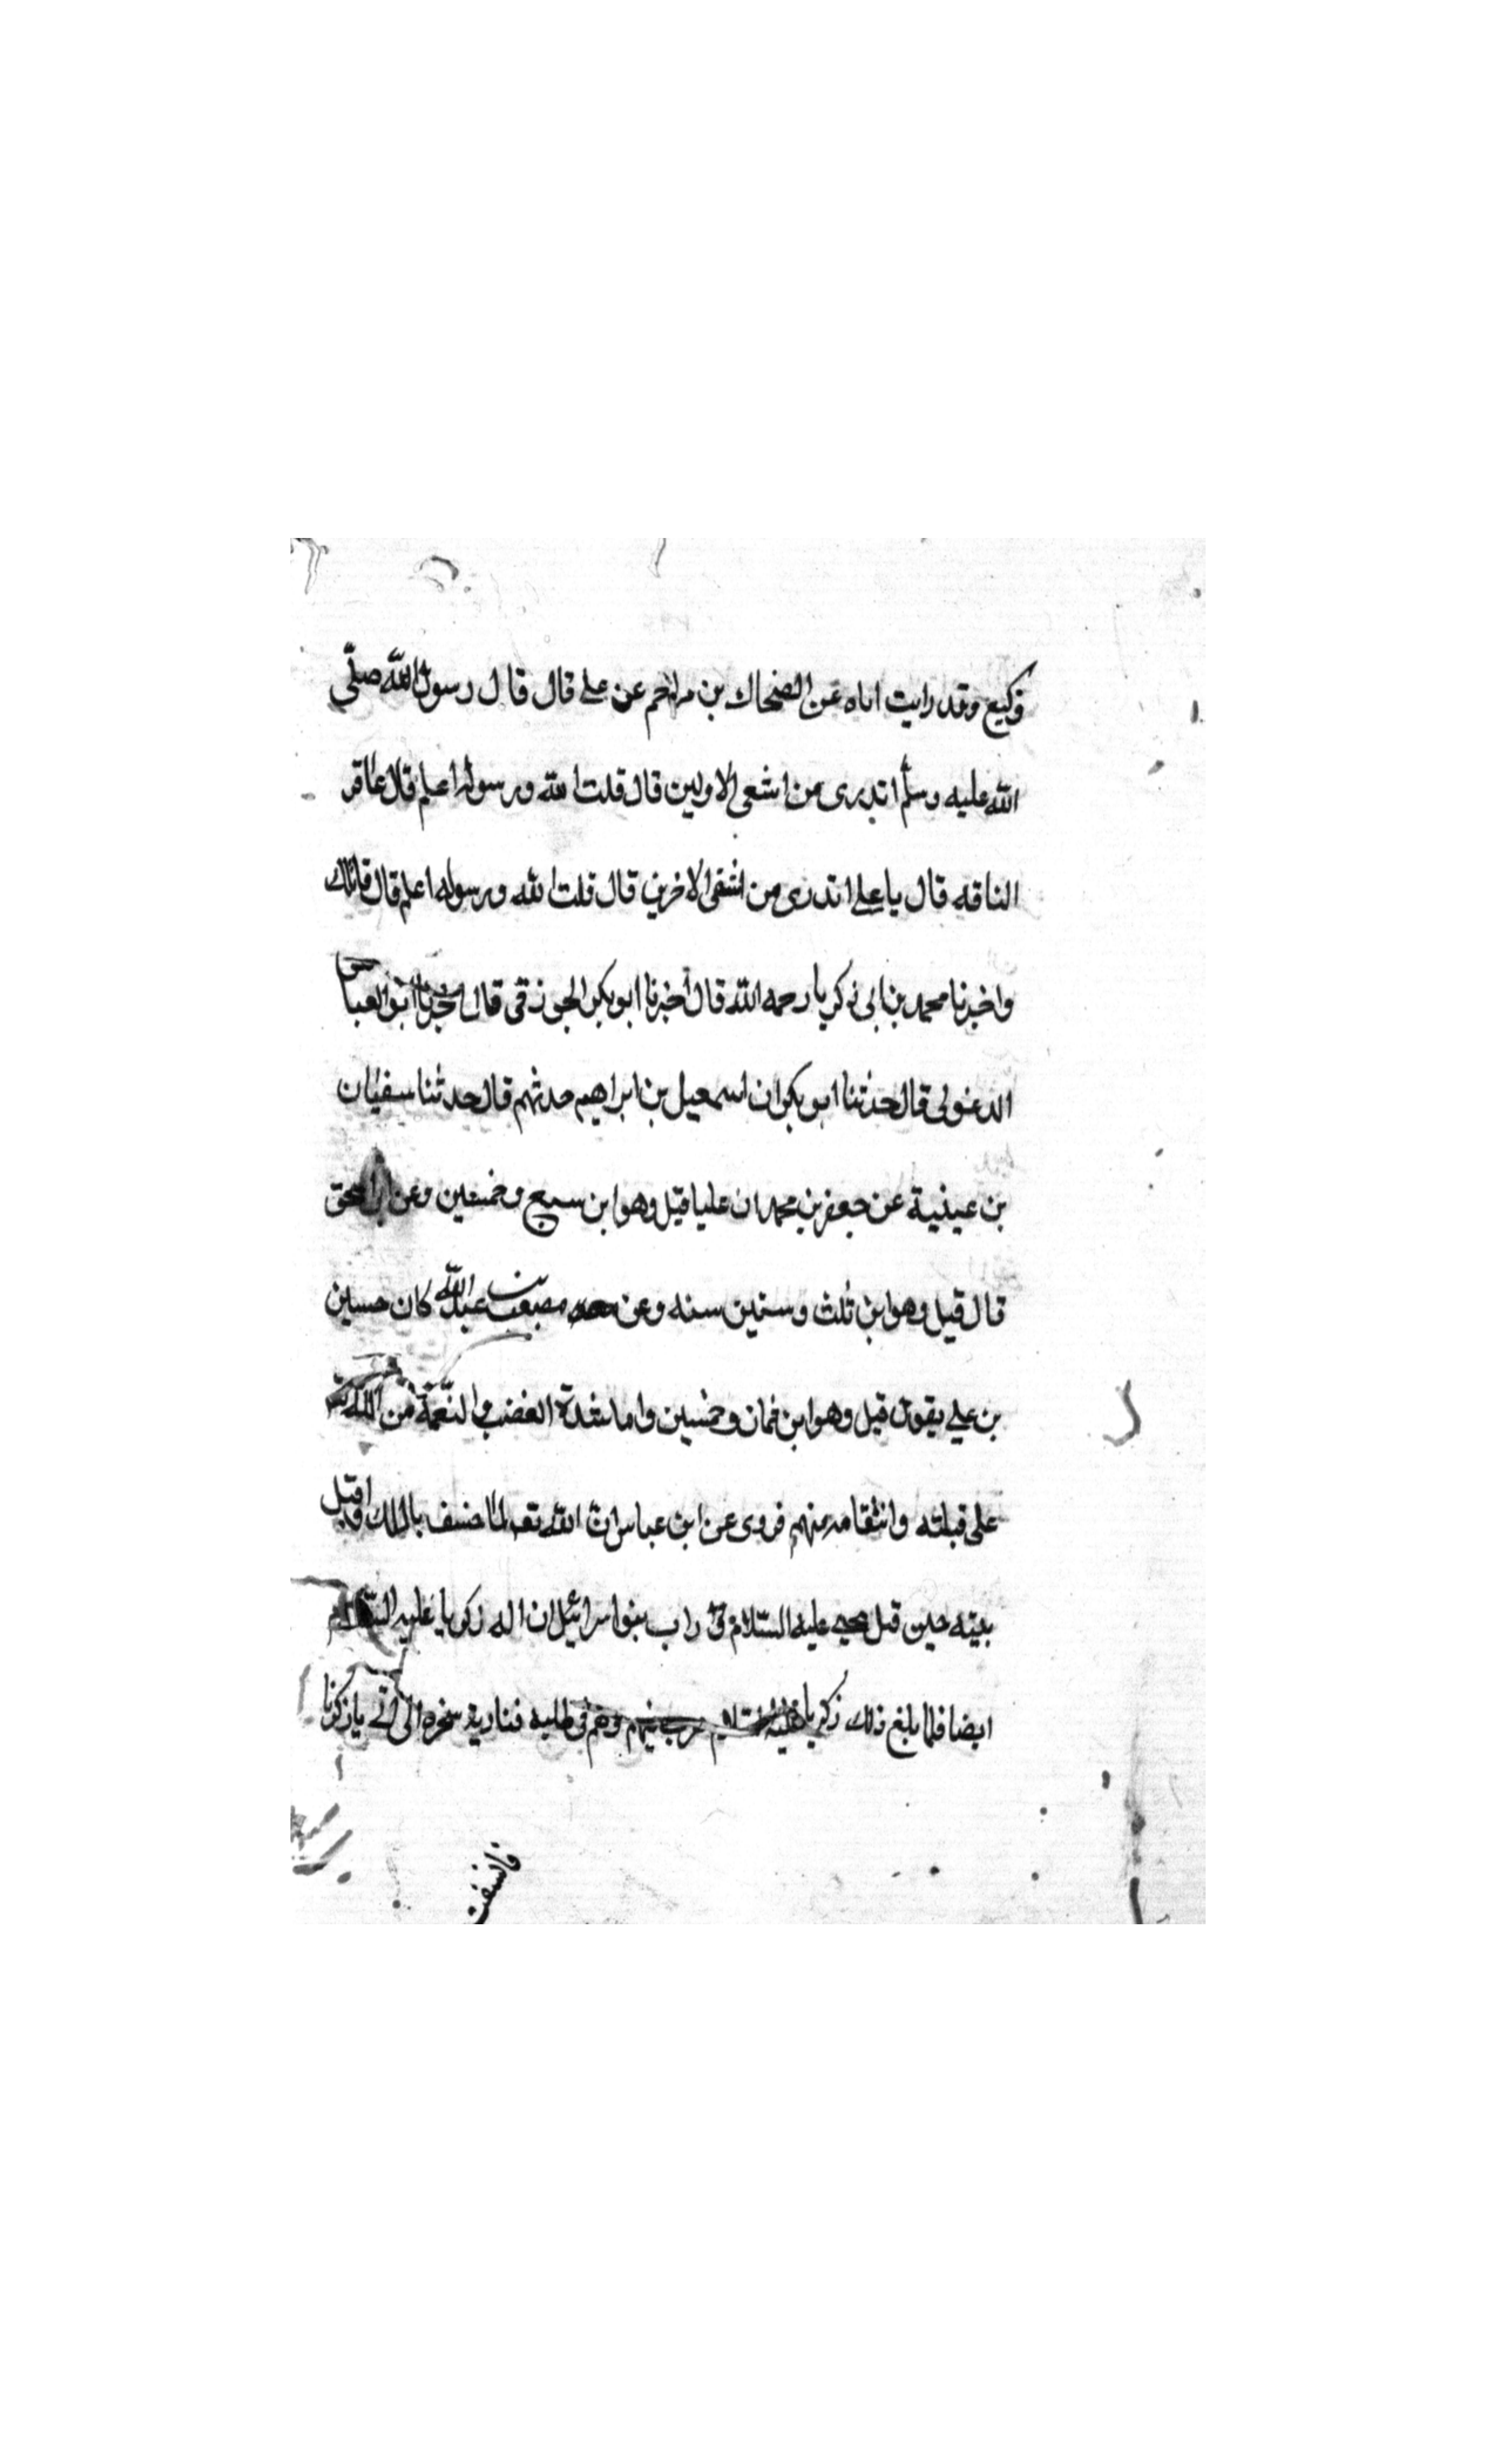 وكيع وقد رايت اباه عن الضحاك بن مزاحم عن علي قال قال رسول الله صلى
الله عليه وسلم اتدرى من اشقى الاولين قال قلت الله ورسوله اعلم قال عاقر
الناقه قال يا علي اتدرى من اشقى الاخرين قال قلت الله ورسوله اعلم قال قاتلك
واخبرنا محمد بن ابى زكريا رحمه الله قال اخبرنا ابو بكر الجوزقى قال اخبرنا ابو العباس
الدغولى قال حدثنا ابو بكر ان اسمعيل بن ابراهيم حدثهم قال حدثنا سفيان
بن عيينة عن جعفر بن محمد ان عليا قتل وهو ابن سبع وخمسين وعن
قال قتل وهو ابن ثلث وستين سنه وعن مصعب بن عبد الله كان حسين
بن علي يقول قتل وهو ابن ثمان وخمسين واما شدة الغضب والنقمة من الله
على قتلته وانتقامه منهم فروى عن ابن عباس ان الله تعـ لما خسف بالملك
بيته حين قتل يحيى عليه السلام بنو اسرائيل ان اله زكريا عليه السلام
ايضا فلما بلغ ذلك زكريا منهم وهم فى طلبه فنادته يا زكريا
فانشقت